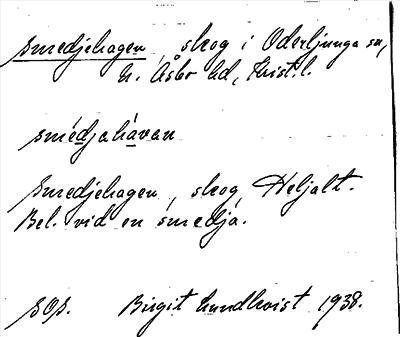 Smedjehagen, skog i Oderljunga sn,
N. Åsbo hd, Krist. l.
smédjahávan
Smedjehagen, skog, Heljalt.
Bel. vid en smedja.
SOS. Birgit Lundkvist 1938.